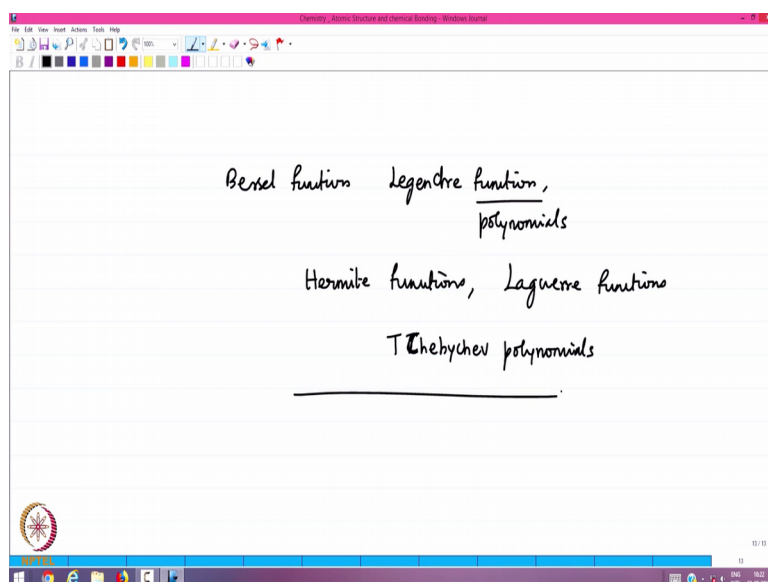 Chemistry _ Atomic Structure and chemical Bonding - Windows Journal
File Edit View Insert Actions Tools Help
100%
B I
Bessel functions Legendre function,
polynomials
Hermite functions, Laguerre functions
TChebychev polynomials
NPTEL
13 / 13
13
ENG 16:22